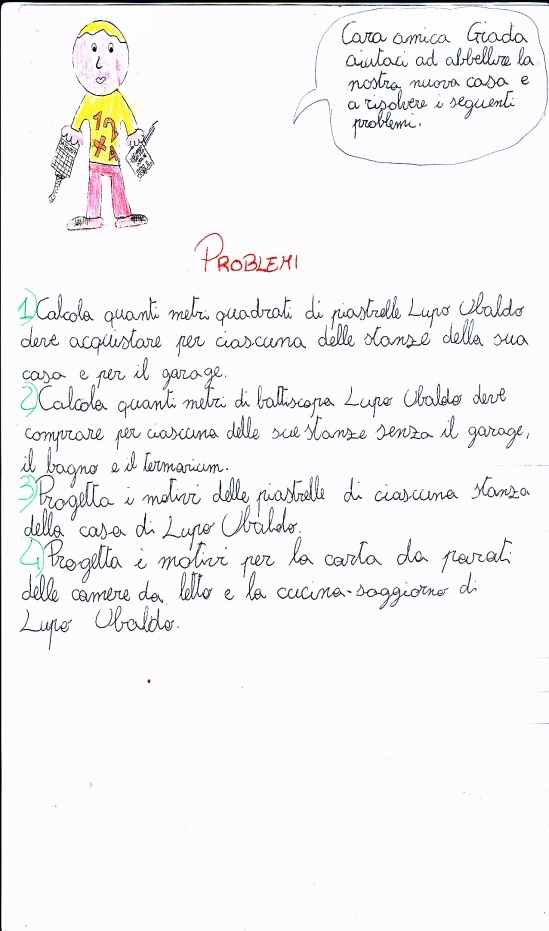 Cara amica Giada
aiutaci ad abbellire la
nostra nuova casa e
a risolvere i seguenti
problemi.
12
+4
PROBLEMI
1) Calcola quanti metri quadrati di piastrelle Lupo Ubaldo
deve acquistare per ciascuna delle stanze della sua
casa e per il garage.
2) Calcola quanti metri di battiscopa Lupo Ubaldo deve
comprare per ciascuna delle sue stanze senza il garage,
il bagno e il termarium.
3) Progetta i motivi delle piastrelle di ciascuna stanza
della casa di Lupo Ubaldo.
4) Progetta i motivi per la carta da parati
delle camere da letto e la cucina-soggiorno di
Lupo Ubaldo.